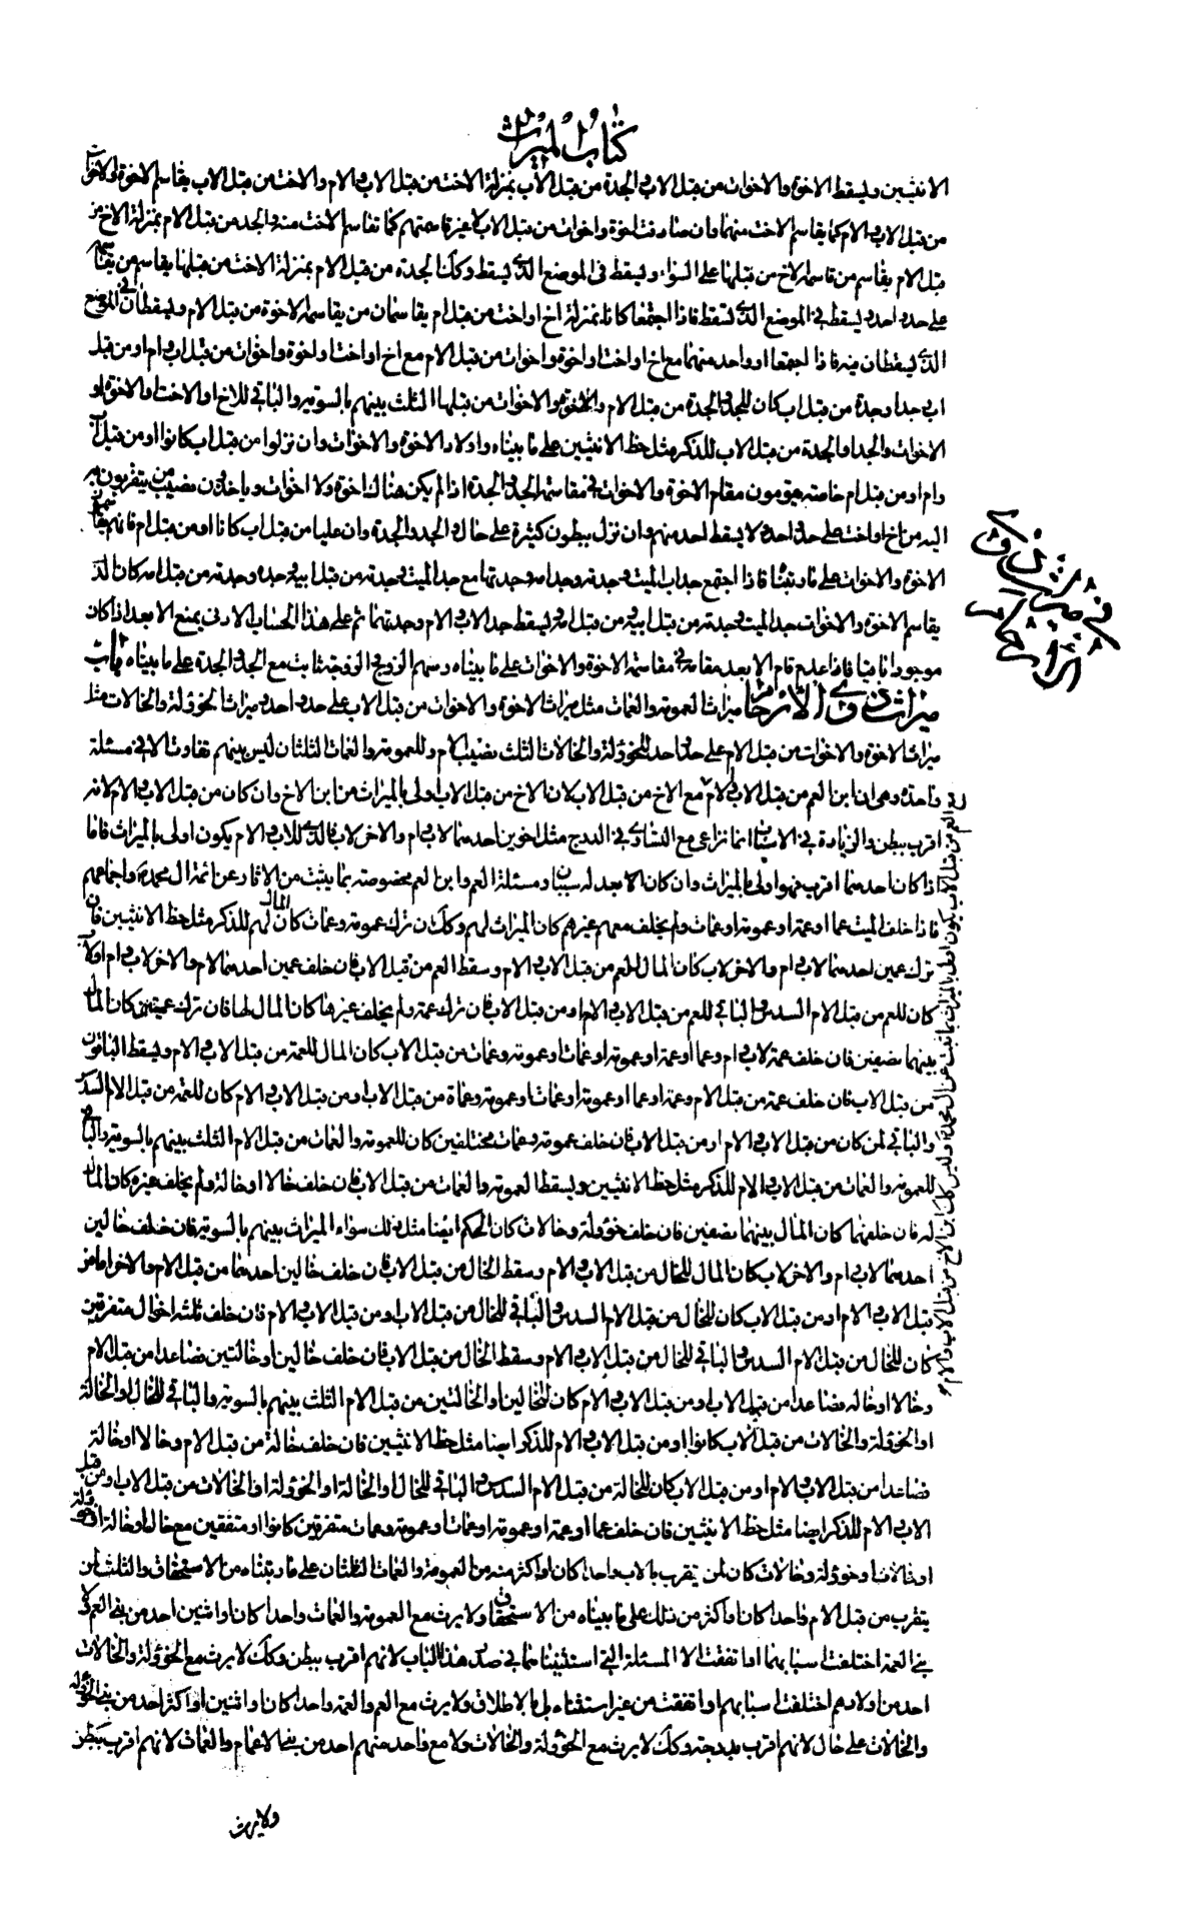 كتاب الميراث
الانثيين ويسقط الاخوة والاخوات من قبل الاب والجدة من قبل الأب بمنزلة الاخت من قبل الاب والام والاخت من قبل الاب يقاسم الاخوة والاخوات
من قبل الاب والام كما يقاسم الاخت منهما وان صادفت اخوة واخوات من قبل الاب لا غير قاسمتهم كما تقاسم الاخت منه والجد من قبل الام بمنزلة الاخ من
قبل الام يقاسم من قاسم الاخ من قبلها على السواء ويسقط في الموضع الذي يسقط وكذلك الجدة من قبل الام بمنزلة الاخت من قبلها يقاسم من يقاسم
على حد واحد ويسقط في الموضع الذي تسقط فاذا اجتمعا كانا بمنزلة اخ او اخت من قبل ام يقاسمان من يقاسم الاخوة من قبل الام ويسقطان في الموضع
الذي يسقطان فيه فاذا اجتمعا او واحد منهما مع اخ او اخت او اخوة واخوات من قبل الام مع اخ او اخت او اخوة واخوات من قبل اب وام او من قبل
اب وجد او جدة من قبل اب كان للجد والجدة من قبل الام والاخوة والاخوات من قبلها الثلث بينهم بالسوية والباقي للاخ او الاخت والاخوة او
الاخوات والجد او الجدة من قبل الاب للذكر مثل حظ الانثيين على ما بيناه واولاد الاخوة والاخوات وان نزلوا من قبل اب كانوا او من قبل اب
وام او من قبل ام خاصة يقومون مقام الاخوة والاخوات في مقاسمة الجد والجدة اذا لم يكن هناك اخوة ولا اخوات وياخذون نصيب من يتقربون به
اليه من اخ او اخت على حد واحد ولا يسقط احد منهم وان نزل ببطون كثيرة على حال والجد والجدة وان عليا من قبل اب كانا او من قبل ام فانهم يقاسمان
الاخوة والاخوات على ما رتبناه فاذا اجتمع جد اب الميت وجدته وجد امه وجدتها مع جد الميت وجدته من قبل ابيه وجده وجدته من قبل امه كان الذي
يقاسم الاخوة والاخوات جد الميت وجدته من قبل ابيه من قبل امه ويسقط جد الاب والام وجدتهما ثم على هذا الحساب الادنى يمنع الابعد اذا كان
موجودا باقيا فاذا عدم قام الابعد مقامه في مقاسمة الاخوة والاخوات على ما بيناه وسهم الزوج والزوجة ثابت مع الجد والجدة على ما بيناه باب
ميراث ذوي الارحام ميراث العمومة والعمات مثل ميراث الاخوة والاخوات من قبل الاب على حد واحد وميراث الخؤولة والخالات مثل
ميراث الاخوة والاخوات من قبل الام على حد واحد للخؤولة والخالات الثلث نصيب الام وللعمومة والعمات الثلثان ليس بينهم تفاوت الا في مسئلة
واحدة وهي ان ابن العم من قبل الاب والام مع الاخ من قبل الاب لان الاخ من قبل الاب اولى بالميراث من ابن الاخ وان كان من قبل الاب والام لانه
اقرب ببطن والزيادة في الاسباب انما تراعى مع التساوي في الدرج مثل اخوين احدهما لاب وام والاخر لاب فالذي للاب والام يكون اولى بالميراث فاما
اذا كان احدهما اقرب فهو اولى بالميراث وان كان الابعد له سببان ومسئلة العم وابن العم مخصوصة بما يثبت من الاثار عن ائمة ال محمد واجماعهم
فاذا خلف الميت عما او عمة او عمومة او عمات ولم يخلف معهم غيرهم كان الميراث لهم وكذلك ان ترك عمومة وعمات كان المال لهم للذكر مثل حظ الانثيين فان
ترك عمين احدهما لاب وام والاخر لاب كان المال للعم من قبل الاب والام وسقط العم من قبل الاب فان خلف عمين احدهما لام والاخر لاب وام او لاب
كان للعم من قبل الام السدس والباقي للعم من قبل الاب والام او من قبل الاب فان ترك عمة ولم يخلف غيرها كان المال لها فان ترك عمتين كان المال
بينهما نصفين فان خلف عمة لاب وام وعما او عمة او عمومة او عمات او عمومة وعمات من قبل الاب كان المال للعمة من قبل الاب والام ويسقط الباقون
من قبل الاب فان خلف عمة من قبل الام وعمة او عما او عمومة او عمات او عمومة وعماة من قبل الاب او من قبل الاب والام كان للعمة من قبل الام السدس
والباقي لمن كان من قبل الاب والام او من قبل الاب فان خلف عمومة وعمات مختلفين كان للعمومة والعمات من قبل الام الثلث بينهم بالسوية والباقي
للعمومة والعمات من قبل الاب والام للذكر مثل حظ الانثيين ويسقط العمومة والعمات من قبل الاب فان خلف خالا او خالة ولم يخلف غيره كان المال
له فان خلفهما كان المال بينهما نصفين فان خلف خؤولة وخالات كان الحكم ايضا مثل ذلك سواء الميراث بينهم بالسوية فان خلف خالين
احدهما لاب وام والاخر لاب كان المال للخال من قبل الاب والام وسقط الخال من قبل الاب فان خلف خالين احدهما من قبل الام والاخر اما من
قبل الاب والام او من قبل الاب كان للخال من قبل الام السدس والباقي للخال من قبل الاب او من قبل الاب والام فان خلف ثلثه اخوال متفرقين
كان للخال من قبل الام السدس والباقي للخال من قبل الاب والام وسقط الخال من قبل الاب فان خلف خالين او خالتين فصاعدا من قبل الام
وخالا او خاله فصاعدا من قبل الاب او من قبل الاب والام كان للخالين او الخالتين من قبل الام الثلث بينهم بالسوية والباقي للخال او الخالة
او الخؤولة والخالات من قبل الأب كانوا او من قبل الاب والام للذكر ايضا مثل حظ الانثيين فان خلف خالة من قبل الام وخالا او خالة
فصاعدا من قبل الاب والام او من قبل الاب كان للخالة من قبل الام السدس والباقي للخال او الخالة او الخؤولة او الخالات من قبل الاب او من قبل
الاب والام للذكر ايضا مثل حظ الانثيين فان خلف عما او عمة او عمومة او عمات او عمومة وعمات متفرقين كانوا او متفقين مع خال او خالة او خؤولة
او خالات او خؤولة وخالات كان لمن يتقرب بالاب واحدا كان او اكثر منه من العمومة والعمات الثلثان على ما رتبناه من الاستحقاق والثلث لمن
يتقرب من قبل الام واحدا كان او اكثر من ذلك على ما بيناه من الاستحقاق ولا يرث مع العمومة والعمات واحدا كان او اثنين احد من بني العم ولا
بني العمة اختلفت اسبابهما او اتفقت الا المسئلة التي استثنيناها في صدر هذا الباب لانهم اقرب ببطن وكذلك لا يرث مع الخؤولة والخالات
احد من اولادهم اختلفت اسبابهم او اتفقت من غير استثناء بل بالاطلاق ولا يرث مع العم والعمة واحدا كان او اثنين او اكثر احد من بني الخؤولة
والخالات على حال لانهم اقرب بدرجة وكذلك لا يرث مع الخؤولة والخالات ولا مع واحد منهم احد من بني الاعمام والعمات لانهم اقرب ببطن
ولا يرث
في ميراث ذوي الارحام
العم من قبل الاب يكون اولى بالميراث بما ثبت عن ال محمد وليس كذلك ابن الاخ من قبل الاب والام